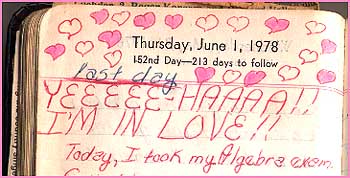 Thursday, June 1, 1978
152nd Day—213 days to follow
last day
YEEEEE-HAAAA!!
I'M IN LOVE!!
Today, I took my Algebra exam.